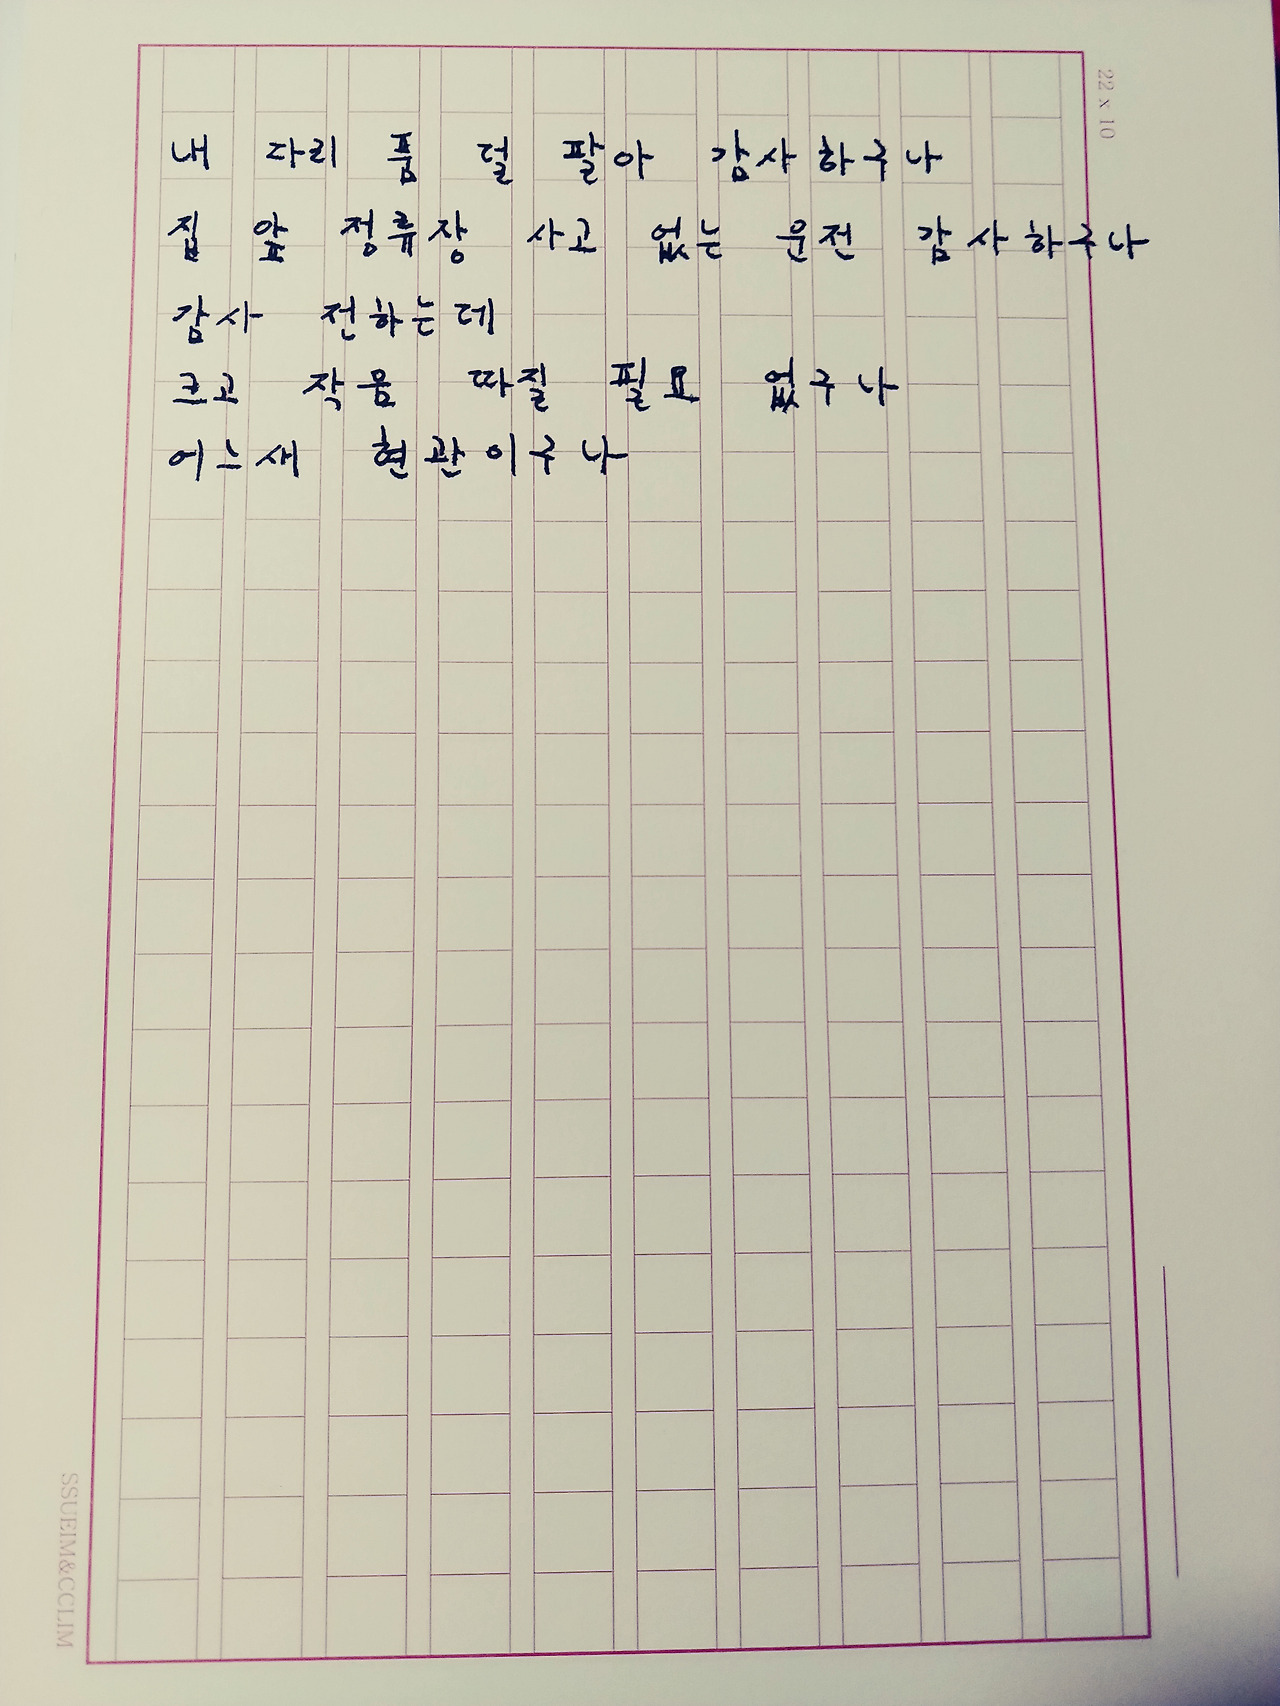 22 x 10
내 다리 품 덜 팔아 감사하구나
집 앞 정류장 사고 없는 운전 감사하구나
감사 전하는데
크고 작음 따질 필요 없구나
어느새 현관이구나
SSUEIM&CCLIM